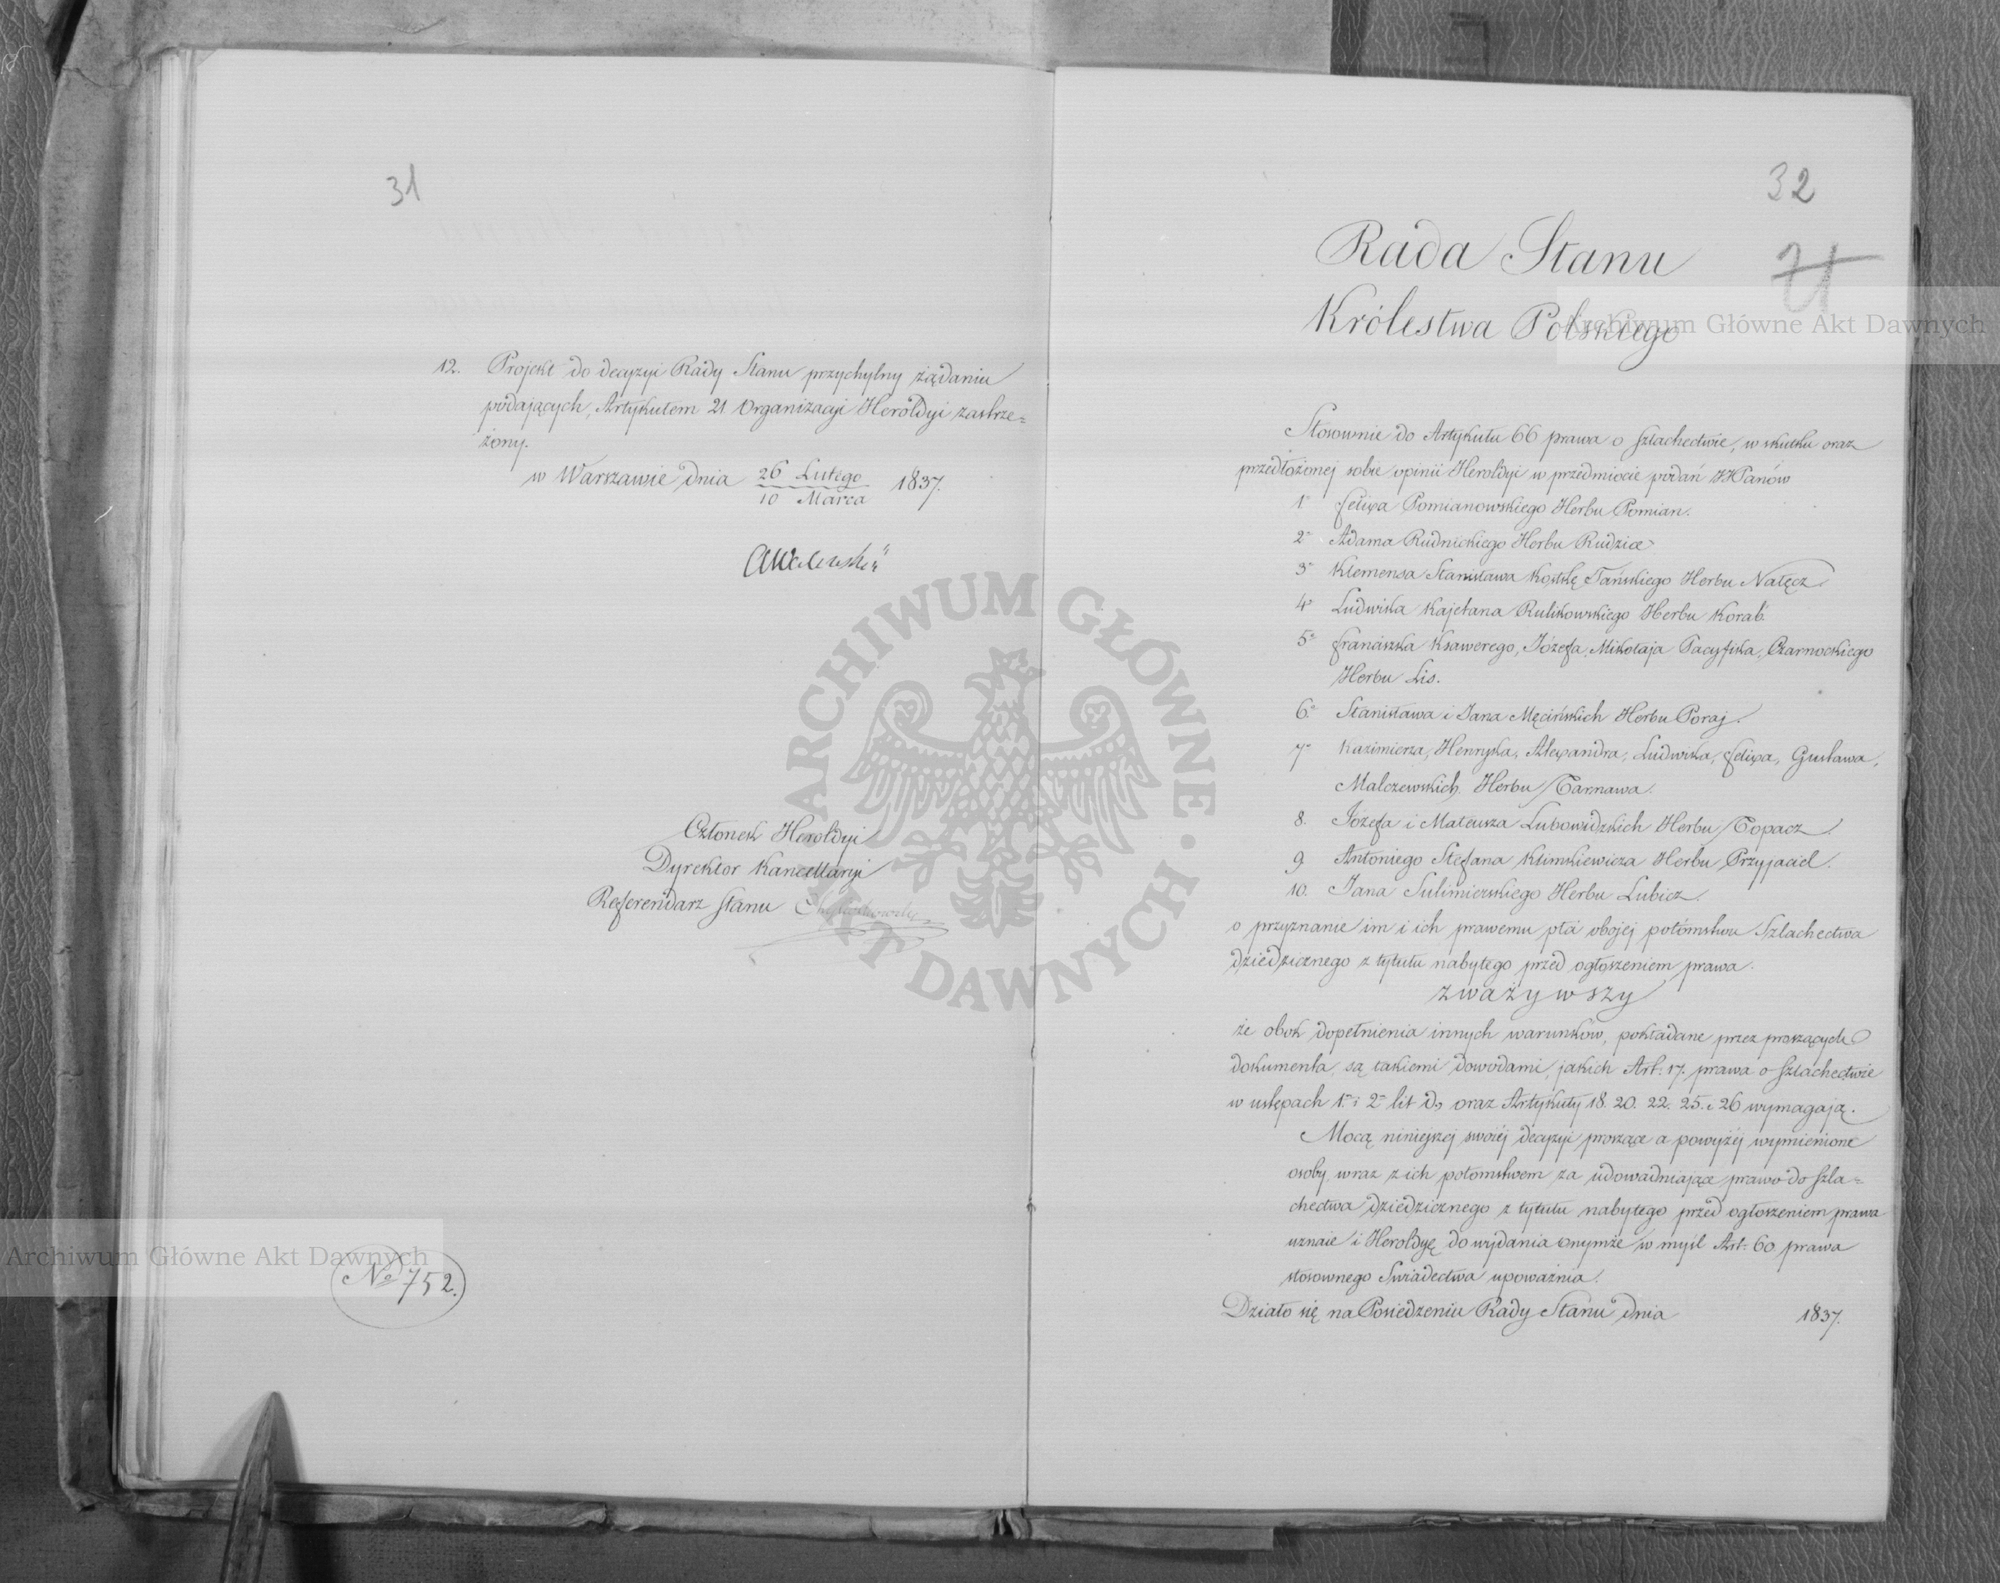 31
12. Projekt do decyzyi Rady Stanu przychylny żądaniu
podających, Artykułem 21 Organizacyi Heroldyi zastrze=
żony.
w Warszawie dnia 26 Lutego / 10 Marca 1837.
Członek Heroldyi
Dyrektor Kancellaryi
Referendarz Stanu
No 752.
32
Rada Stanu
Królestwa Polskiego
Stosownie do Artykułu 66 prawa o szlachectwie, w skutku oraz
przedłożonej sobie opinii Heroldyi w przedmiocie podań JJPanów
1o Felixa Pomianowskiego Herbu Pomian.
2o Adama Rudnickiego Herbu Rudzica
3o Klemensa Stanisława Kostkę Tańskiego Herbu Nałęcz.
4o Ludwika Kajetana Rulikowskiego Herbu Korab.
5o Franciszka Ksawerego, Józefa, Mikołaja Pacyfika, Czarnockiego
Herbu Lis.
6o Stanisława i Jana Męcińskich Herbu Poraj.
7o Kazimierza, Henryka, Alexandra, Ludwika, Felixa, Gustawa,
Malczewskich Herbu Tarnawa.
8. Józefa i Mateusza Lubowidzkich Herbu Topacz.
9 Antoniego Stefana Klimkiewicza Herbu Przyjaciel.
10. Jana Sulimierskiego Herbu Lubicz.
o przyznanie im i ich prawemu płci obojej potomstwu Szlachectwa
dziedzicznego z tytułu nabytego przed ogłoszeniem prawa.
zważywszy
że obok dopełnienia innych warunków, pokładane przez proszących
dokumenta są takiemi dowodami, jakich Art: 17. prawa o szlachectwie
w ustępach 1o i 2o lit d, oraz Artykuły 18. 20. 22. 25. i 26 wymagają.
Mocą niniejszej swoiéj decyzyi proszące a powyżéj wymienione
osoby wraz z ich potomstwem za udowadniające prawo do szla=
chectwa dziedzicznego z tytułu nabytego przed ogłoszeniem prawa
uznaie i Heroldyę do wydania onymże w myśl Art: 60 prawa
stosownego Swiadectwa upoważnia.
Działo się na Posiedzeniu Rady Stanu dnia 1837.
Archiwum Główne Akt Dawnych
Archiwum Główne Akt Dawnych
ARCHIWUM GŁÓWNE · AKT DAWNYCH ·